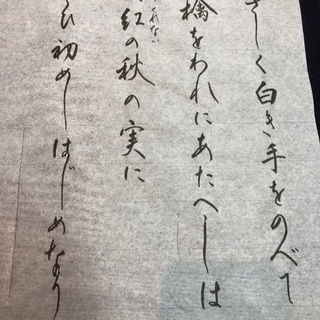 さしく白き手をのべて
檎をわれにあたへしは
紅の秋の実に
ひ初めしはじめなり